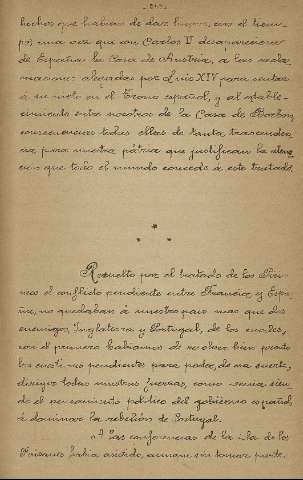 hechos que habian de dar lugar, con el tiem-
po, una vez que con Carlos II desapareciera
de España la Casa de Austria, á las recla-
maciones alegadas por Luis XIV para sentar
á su nieto en el Trono español, y al estable-
cimiento entre nosotros de la Casa de Borbon,
consecuencias todas ellas de tanta trascenden-
cia para nuestra pátria que justifican la aten-
cion que todo el mundo concede á este tratado.
* * *
Resuelto por el tratado de los Piri-
neos el conflicto pendiente entre Francia y Espa-
ña, no quedaban á nuestro pais mas que dos
enemigos, Inglaterra y Portugal, de los cuales,
con el primero habiamos de resolver bien pronto
las cuestiones pendientes para poder, de esa suerte,
dirigir todas nuestras fuerzas, como venia sien-
do el pensamiento politico del gobierno español,
á dominar la rebelión de Portugal.
A las conferencias de la isla de los
Faisanes habia asistido, aunque sin tomar parte